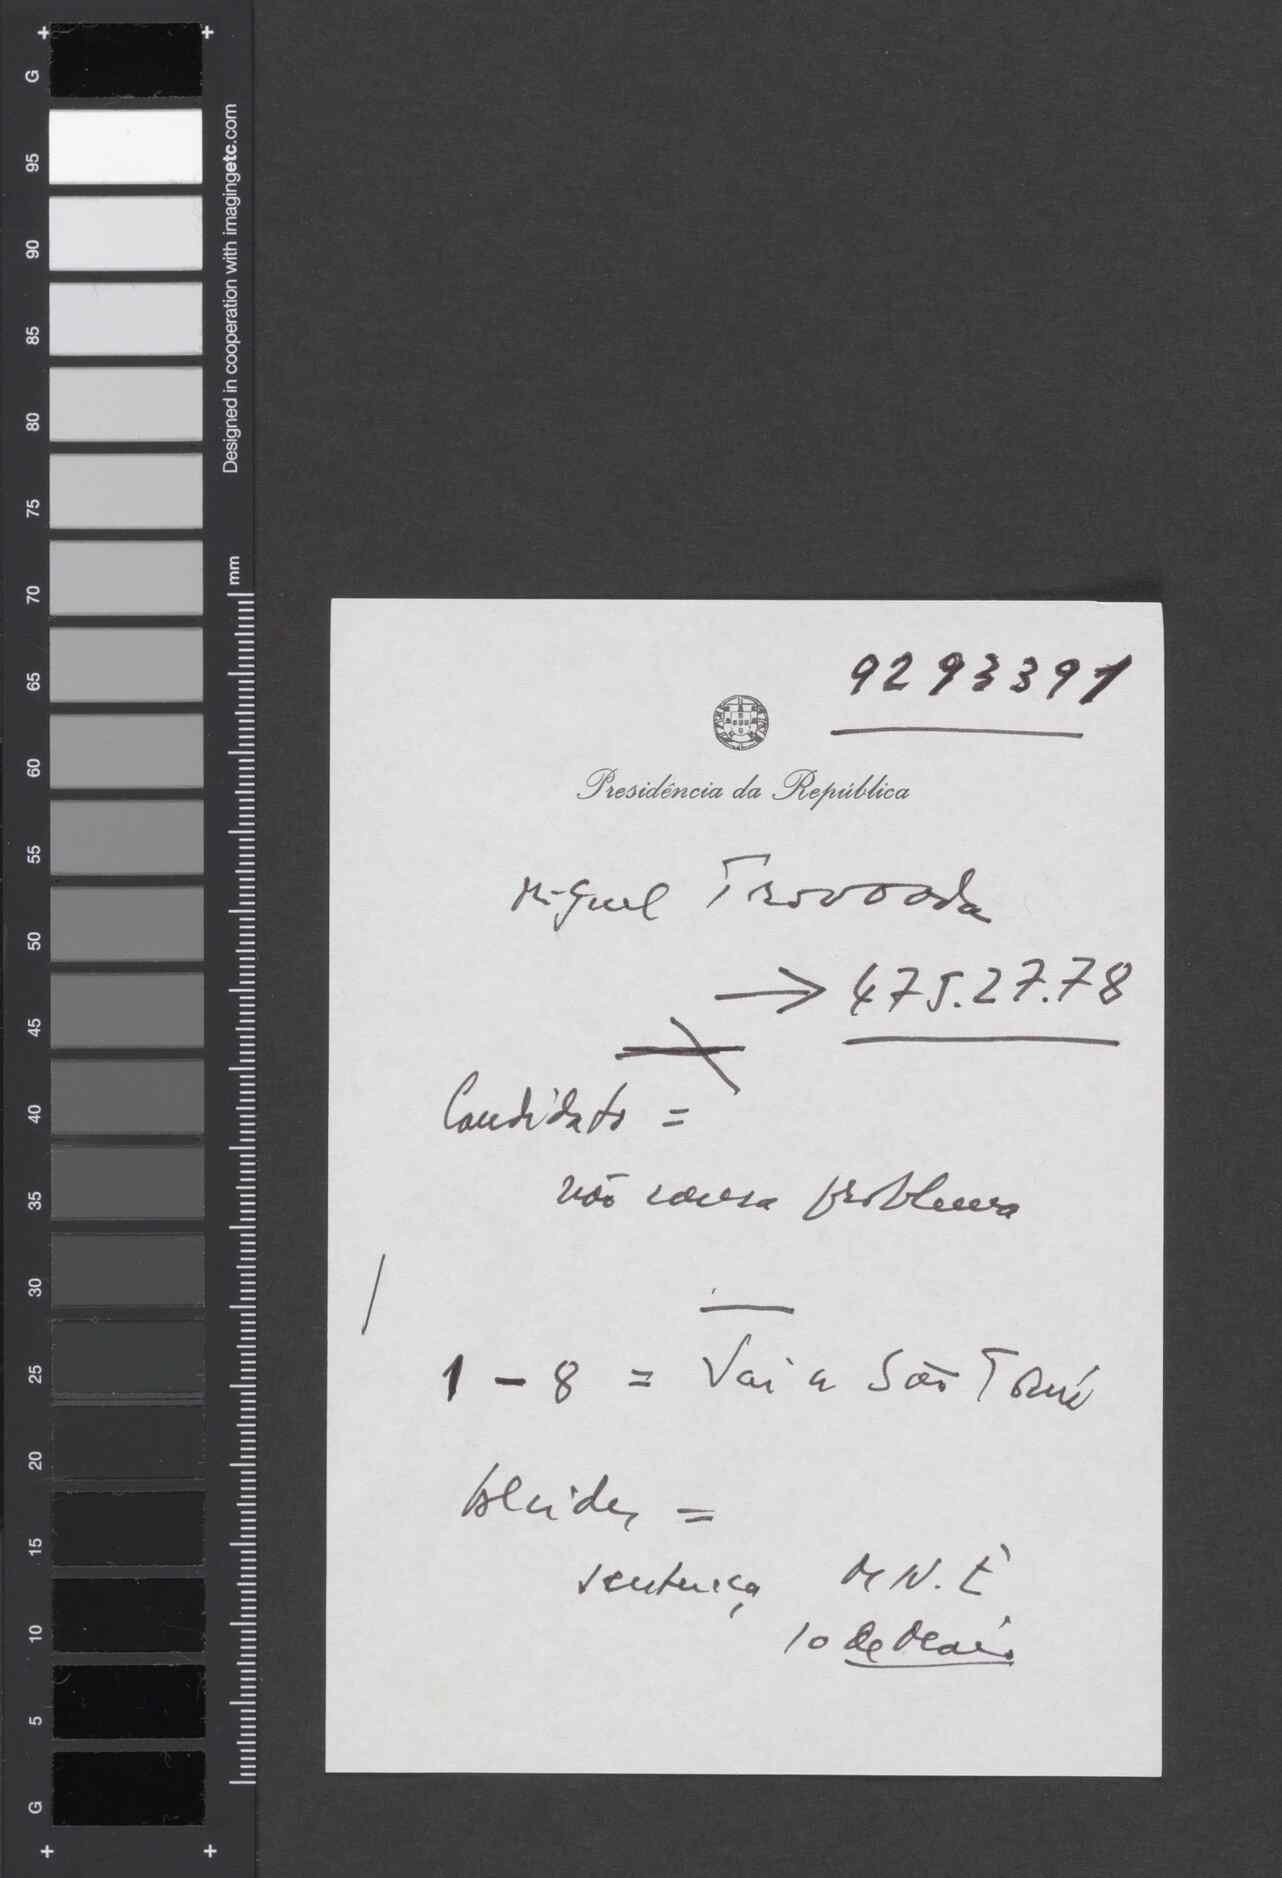 G
95
90
85
80
75
70
65
60
55
50
45
40
35
30
25
20
15
10
5
G
Designed in cooperation with imagingetc.com
mm
9293391
Presidência da República
Miguel Trovoada
→ 475.27.78
Candidato =
não causa problema
1 - 8 = Vai a São Tomé
=
sentença M.N.E
10 de Maio